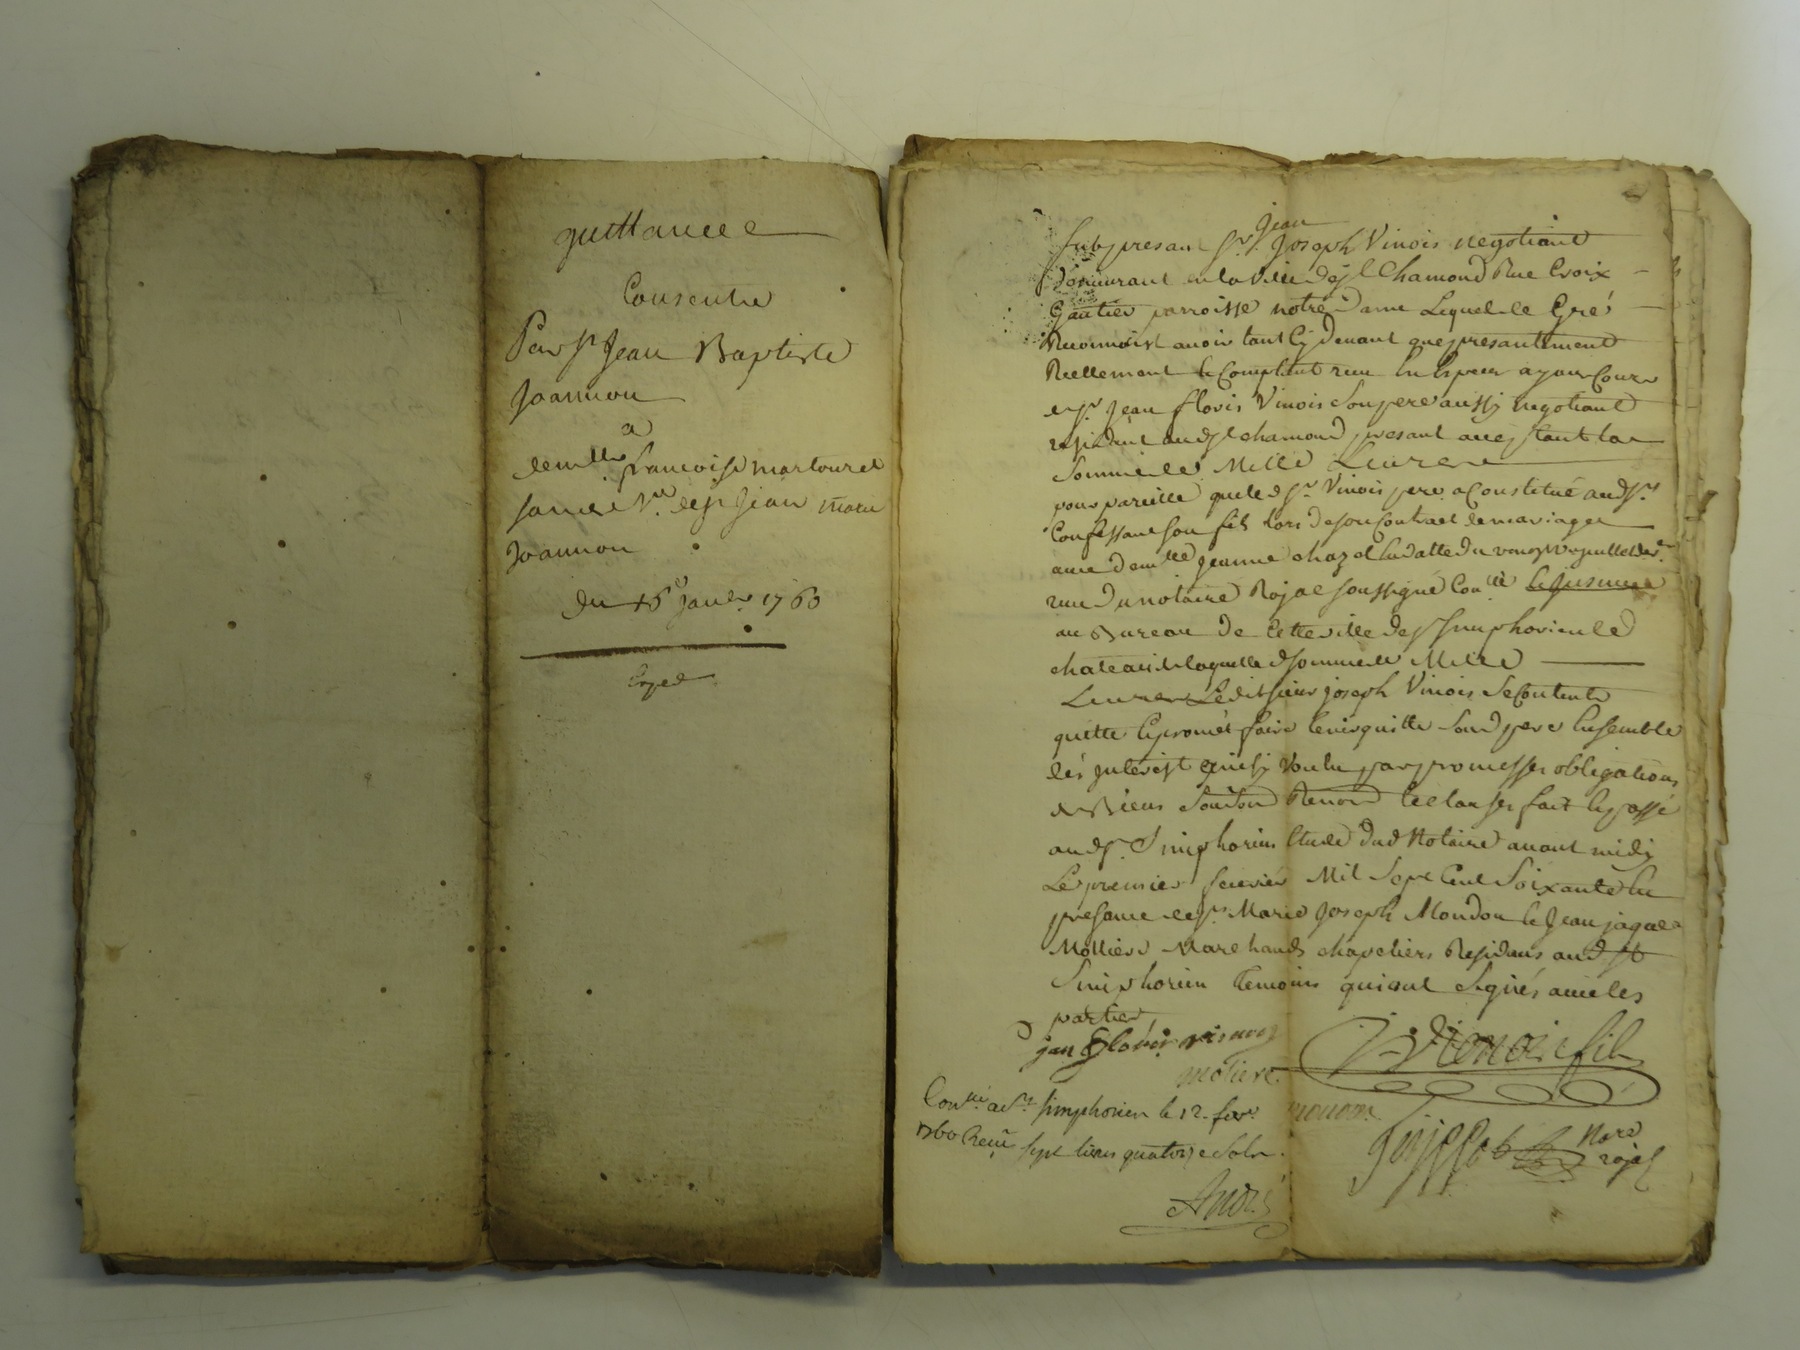 quittance
Consentie
Par Sr Jean Baptiste
Joannon
a
demlle francoise martouret
Jeann
Joannon
du 16e Janvr 1760
Exped
jean
fut presant Sr Joseph Vinois negotiant
demeurant en la ville de St Chamond Rue Croix
Gautier parroisse notre Dame Lequel de Gré
Reconnoist avoir tant cy devant que presantement
Reellement & Comptant recu en especes ayant Cours
de Sr Jean floris Vinois son pere aussy negotiant
residant aud St chamond presant acceptant la
Somme de Mille Livres
pour pareille que led Sr Vinois pere a Constitué aud Sr
Confessant son fils lors de son Contract de mariage
avec demlle Jeanne chazel en datte du
recu du notaire Royal soussigné Conllé
au Bureau de Cette ville de St Simphorien le
chateau de laquelle d somme de Mille
Livres Ledit sieur joseph Vinois se Contente
quitte & promet faire tenir quitte sond pere Ensemble
des interest
de Biens Renon & clauses fait & passé
aud St Simphorien Etude dud Notaire avant midy
Le premier fevrier Mil Sept Cent Soixante En
presance de Sr Marie Joseph Mondon & Jean jaque
Molliere Marchands chapeliers Residans aud St
Simphorien temoins qui ont Signés avec les
parties
jan floris vinois
J. Vinois fils
molliere
Conllé a St Simphorien le 12 fevr
1760 Receu sept livres quatorze sols
Nore
royal
André